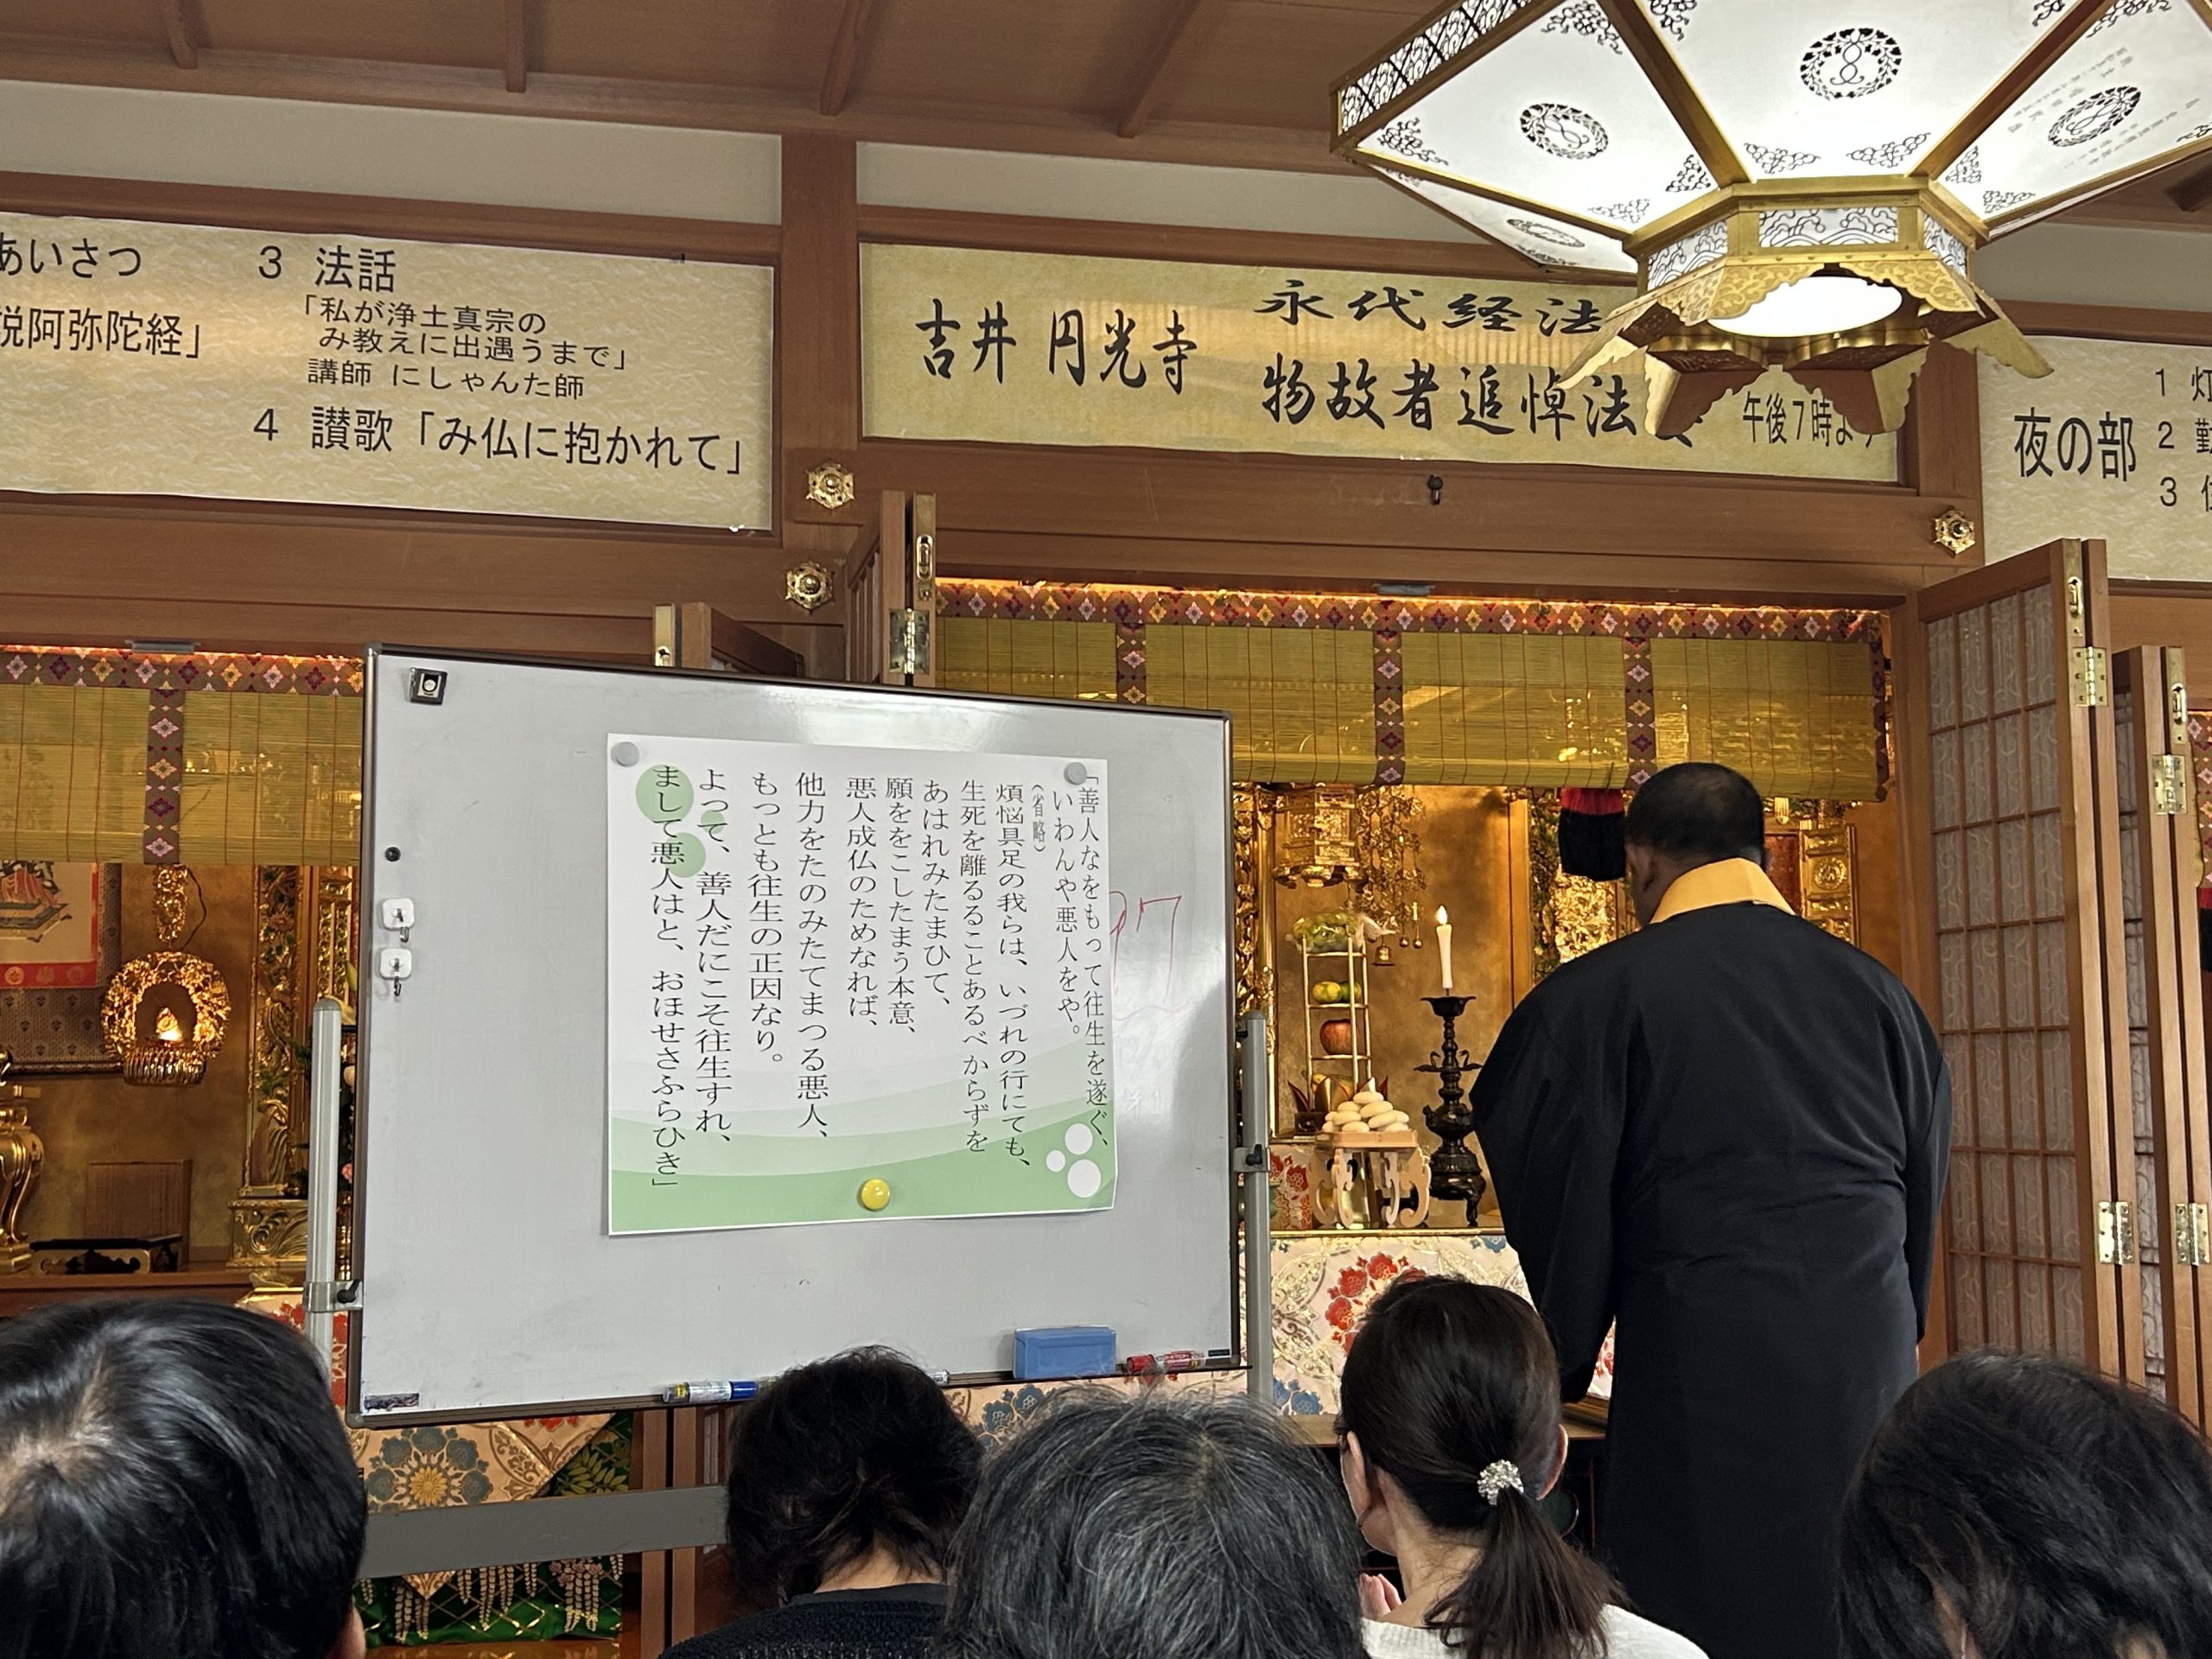 あいさつ
説阿弥陀経」
3 法話
「私が浄土真宗の
み教えに出遇うまで」
講師 にしゃんた師
4 讃歌「み仏に抱かれて」
吉井 円光寺
永代経法
物故者追悼法
午後7時より
夜の部
1 灯
2 勤
3
「善人なをもって往生を遂ぐ、
いわんや悪人をや。
(省略)
煩悩具足の我らは、いづれの行にても、
生死を離るることあるべからずを
あはれみたまひて、
願ををこしたまう本意、
悪人成仏のためなれば、
他力をたのみたてまつる悪人、
もっとも往生の正因なり。
よって、善人だにこそ往生すれ、
まして悪人はと、おほせさふらひき」